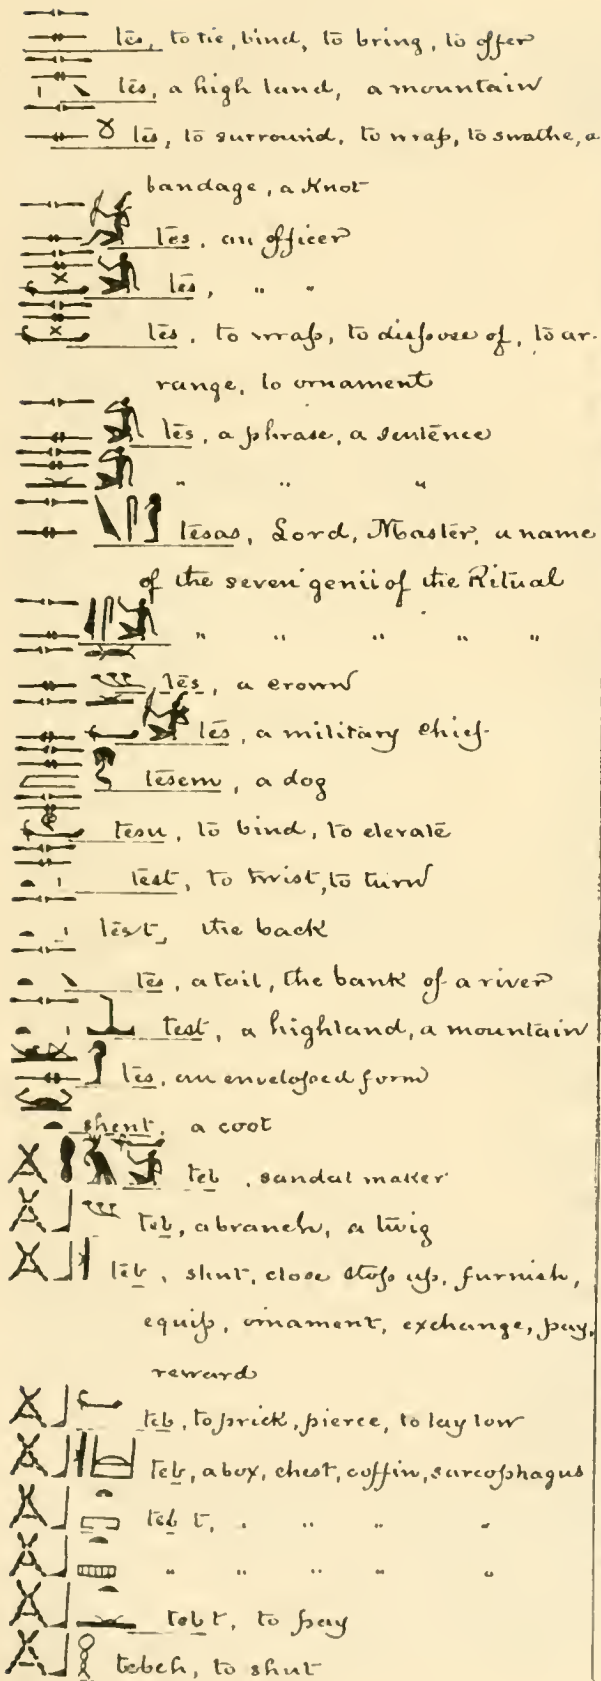 tes, to tie, bind, to bring, to offer
tes, a high land, a mountain
tes, to surround, to wrap, to swathe, a
bandage, a Knot
tes, an officer
tes, " "
tes, to wrap, to dispose of, to ar-
range, to ornament
tes, a phrase, a sentence
" " "
tesas, Lord, Master, a name
of the seven genii of the Ritual
" " " " "
tes, a crown
tes, a military chief
tesem, a dog
tesu, to bind, to elevate
test, to twist, to turn
test, the back
tes, a tail, the bank of a river
test, a highland, a mountain
tes, an enveloped form
shent, a coot
teb, sandal maker
teb, a branch, a twig
teb, shut, close stop up, furnish,
equip, ornament, exchange, pay,
reward
teb, to prick, pierce, to lay low
teb, a box, chest, coffin, sarcophagus
teb t, " " " "
" " " " "
tebt, to pay
tebeh, to shut